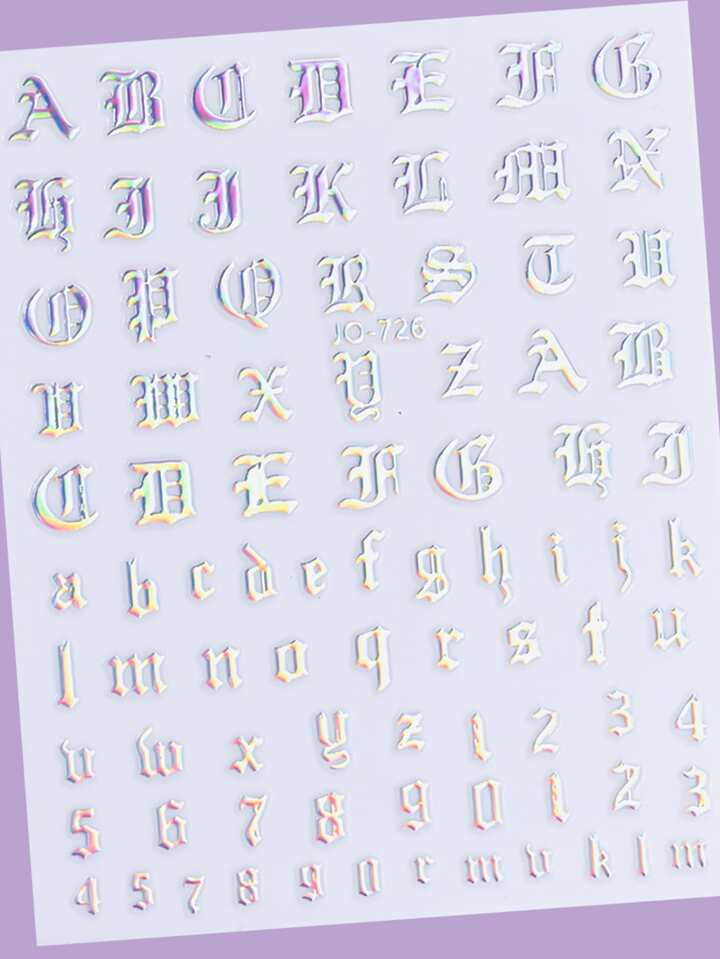 A B C D E F G
H I J K L M N
O P Q R S T U
JO-726
V W X Y Z A B
C D E F G H I
a b c d e f g h i j k
l m n o p q r s t u
v w x y z 1 2 3 4
5 6 7 8 9 0 1 2 3
4 5 7 8 9 0 r m v k l m